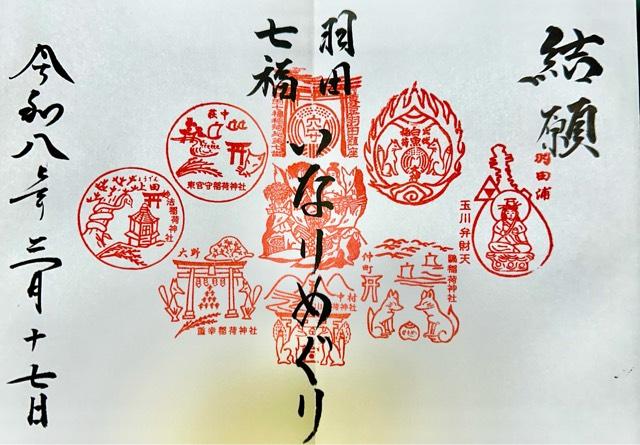 結願
羽田
七福
いなりめぐり
令和八年三月十七日
羽田浦
玉川弁財天
鷗稲荷神社
仲町
白魚稲荷神社
穴守
中村
東官守稲荷神社
上田
稲荷神社
大野
重幸稲荷神社